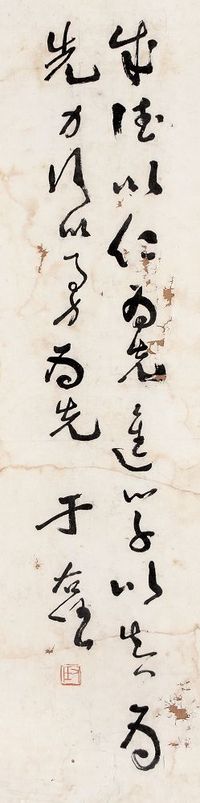 成德以仁為先進學以知為
先力行以勇為先 于右任